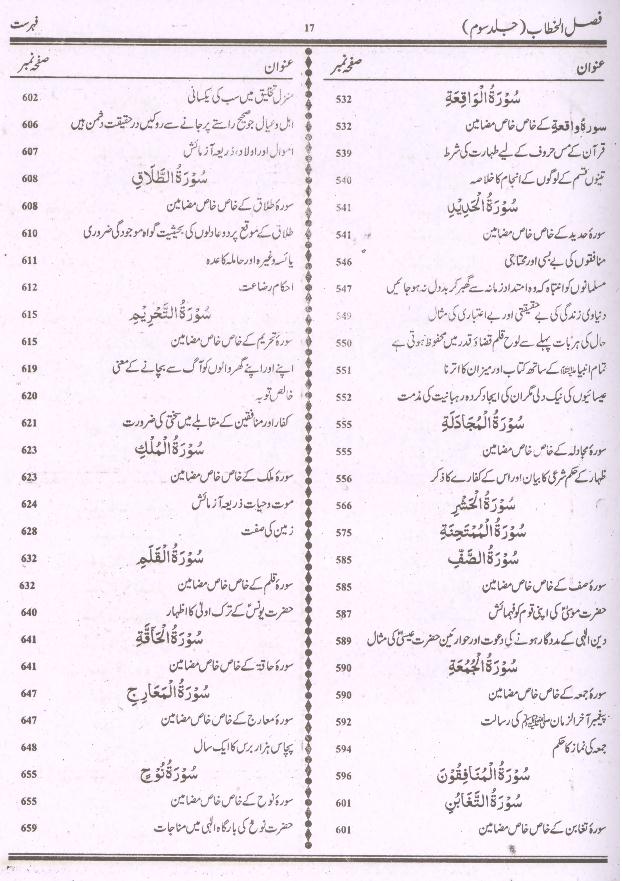 فصل الخطاب (جلد سوم)
17
فہرست
عنوان
صفحہ نمبر
سُوْرَةُ الْوَاقِعَةِ 532
سورہ واقعہ کے خاص خاص مضامین 532
قرآن کے مس حروف کے لیے طہارت کی شرط 539
تینوں قسم کے لوگوں کے انجام کا خلاصہ 540
سُوْرَةُ الْحَدِيْدِ 541
سورۂ حدید کے خاص خاص مضامین 541
منافقوں کی بے بسی اور محتاجی 546
مسلمانوں کو انتباہ کہ وہ امتداد زمانہ سے گھبر کر بد دل نہ ہو جائیں 547
دنیاوی زندگی کی بے حقیقتی اور بے اعتباری کی مثال 549
حال کی ہر بات پہلے سے لوح قلم قضا و قدر میں محفوظ ہوتی ہے 550
تمام انبیاء کے ساتھ کتاب اور میزان کا اترنا 551
عیسائیوں کی نیک دلی مگر ان کی ایجاد کردہ رہبانیت کی مذمت 552
سُوْرَةُ الْمُجَادَلَةِ 555
سورۂ مجادلہ کے خاص خاص مضامین 555
ظہار کے حکم شرعی کا بیان اور اس کے کفارے کا ذکر 556
سُوْرَةُ الْحَشْرِ 566
سُوْرَةُ الْمُمْتَحِنَةِ 575
سُوْرَةُ الصَّفِّ 585
سورۂ صف کے خاص خاص مضامین 585
حضرت موسیٰؑ کی اپنی قوم کو فہمائش 587
دین الٰہی کے مددگار ہونے کی دعوت اور حوارئین حضرت عیسیٰؑ کی مثال 589
سُوْرَةُ الْجُمُعَةِ 590
سورۂ جمعہ کے خاص خاص مضامین 590
پیغمبر آخر الزمان ﷺ کی رسالت 592
جمعہ کی نماز کا حکم 594
سُوْرَةُ الْمُنَافِقُوْنَ 596
سُوْرَةُ التَّغَابُنِ 601
سورۂ تغابن کے خاص خاص مضامین 601
عنوان
صفحہ نمبر
منزل تخلیق میں سب کی یکسانی 602
اہل و عیال جو صحیح راستے پر جانے سے روکیں در حقیقت دشمن ہیں 606
اموال اور اولاد، ذریعہ آزمائش 607
سُوْرَةُ الطَّلَاقِ 608
سورۂ طلاق کے خاص خاص مضامین 608
طلاق کے موقع پر دو عادلوں کی بحیثیت گواہ موجودگی ضروری 610
یائسہ وغیرہ اور حاملہ کا عدہ 611
احکام رضاعت 612
سُوْرَةُ التَّحْرِيْمِ 615
سورۂ تحریم کے خاص خاص مضامین 615
اپنے اور اپنے گھر والوں کو آگ سے بچانے کے معنی 619
خالص توبہ 620
کفار اور منافقین کے مقابلے میں سختی کی ضرورت 621
سُوْرَةُ الْمُلْكِ 623
سورۂ ملک کے خاص خاص مضامین 623
موت و حیات ذریعہ آزمائش 624
زمین کی صفت 628
سُوْرَةُ الْقَلَمِ 632
سورۂ قلم کے خاص خاص مضامین 632
حضرت یونسؑ کے ترک اولیٰ کا اظہار 640
سُوْرَةُ الْحَاقَّةِ 641
سورۂ حاقۃ کے خاص خاص مضامین 641
سُوْرَةُ الْمَعَارِجِ 647
سورۂ معارج کے خاص خاص مضامین 647
پچاس ہزار برس کا ایک سال 648
سُوْرَةُ نُوْحٍ 655
سورۂ نوح کے خاص خاص مضامین 655
حضرت نوحؑ کی بارگاہ الٰہی میں مناجات 659